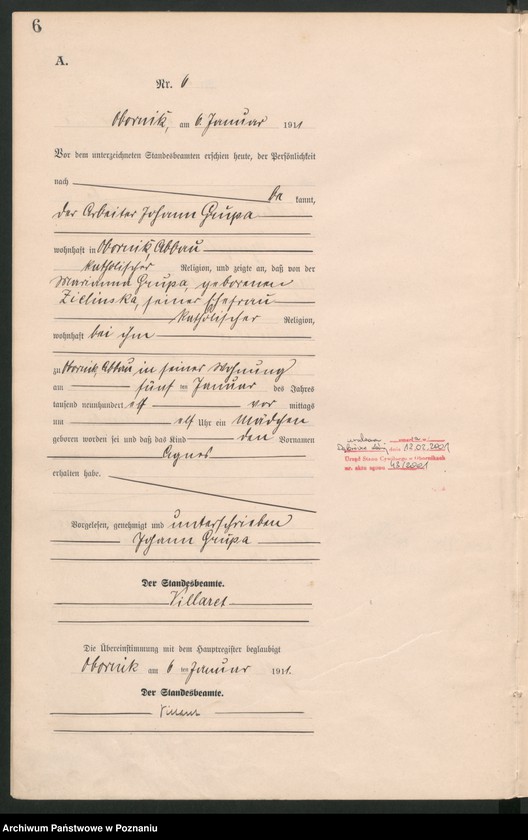 6
A.
Nr. 6
Obornik, am 6. Januar 1911
Vor dem unterzeichneten Standesbeamten erschien heute, der Persönlichkeit
nach be kannt,
der Arbeiter Johann Grupa
wohnhaft in Obornik, Abbau
katholischer Religion, und zeigte an, daß von der
Marianna Grupa, geborenen
Zielinska, seiner Ehefrau
katholischer Religion,
wohnhaft bei ihm
zu Obornik, Abbau, in seiner Wohnung
am fünf ten Januar des Jahres
tausend neunhundert elf vor mittags
um elf Uhr ein Mädchen
geboren worden sei und daß das Kind den Vornamen
Agnes
erhalten habe.
Vorgelesen, genehmigt und unterschrieben
Johann Grupa
Der Standesbeamte.
Villaret
Die Übereinstimmung mit dem Hauptregister beglaubigt
Obornik am 6 ten Januar 1911.
Der Standesbeamte.
Villaret
dnia 12.02.2001
Urząd Stanu Cywilnego w
nr. aktu zgonu 48/2001
Archiwum Państwowe w Poznaniu